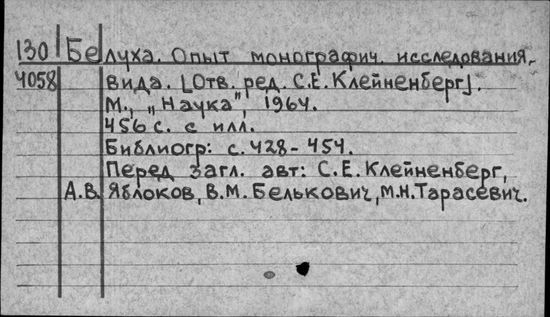 130 Белуха. Опыт монографич. исследования
4058 вида. [Отв. ред. С.Е. Клейненберг].
М., „Наука", 1964.
456 с. с илл.
Библиогр: с. 428-454.
Перед загл. авт: С.Е. Клейненберг,
А.В. Яблоков, В.М. Белькович, М.Н. Тарасевич.